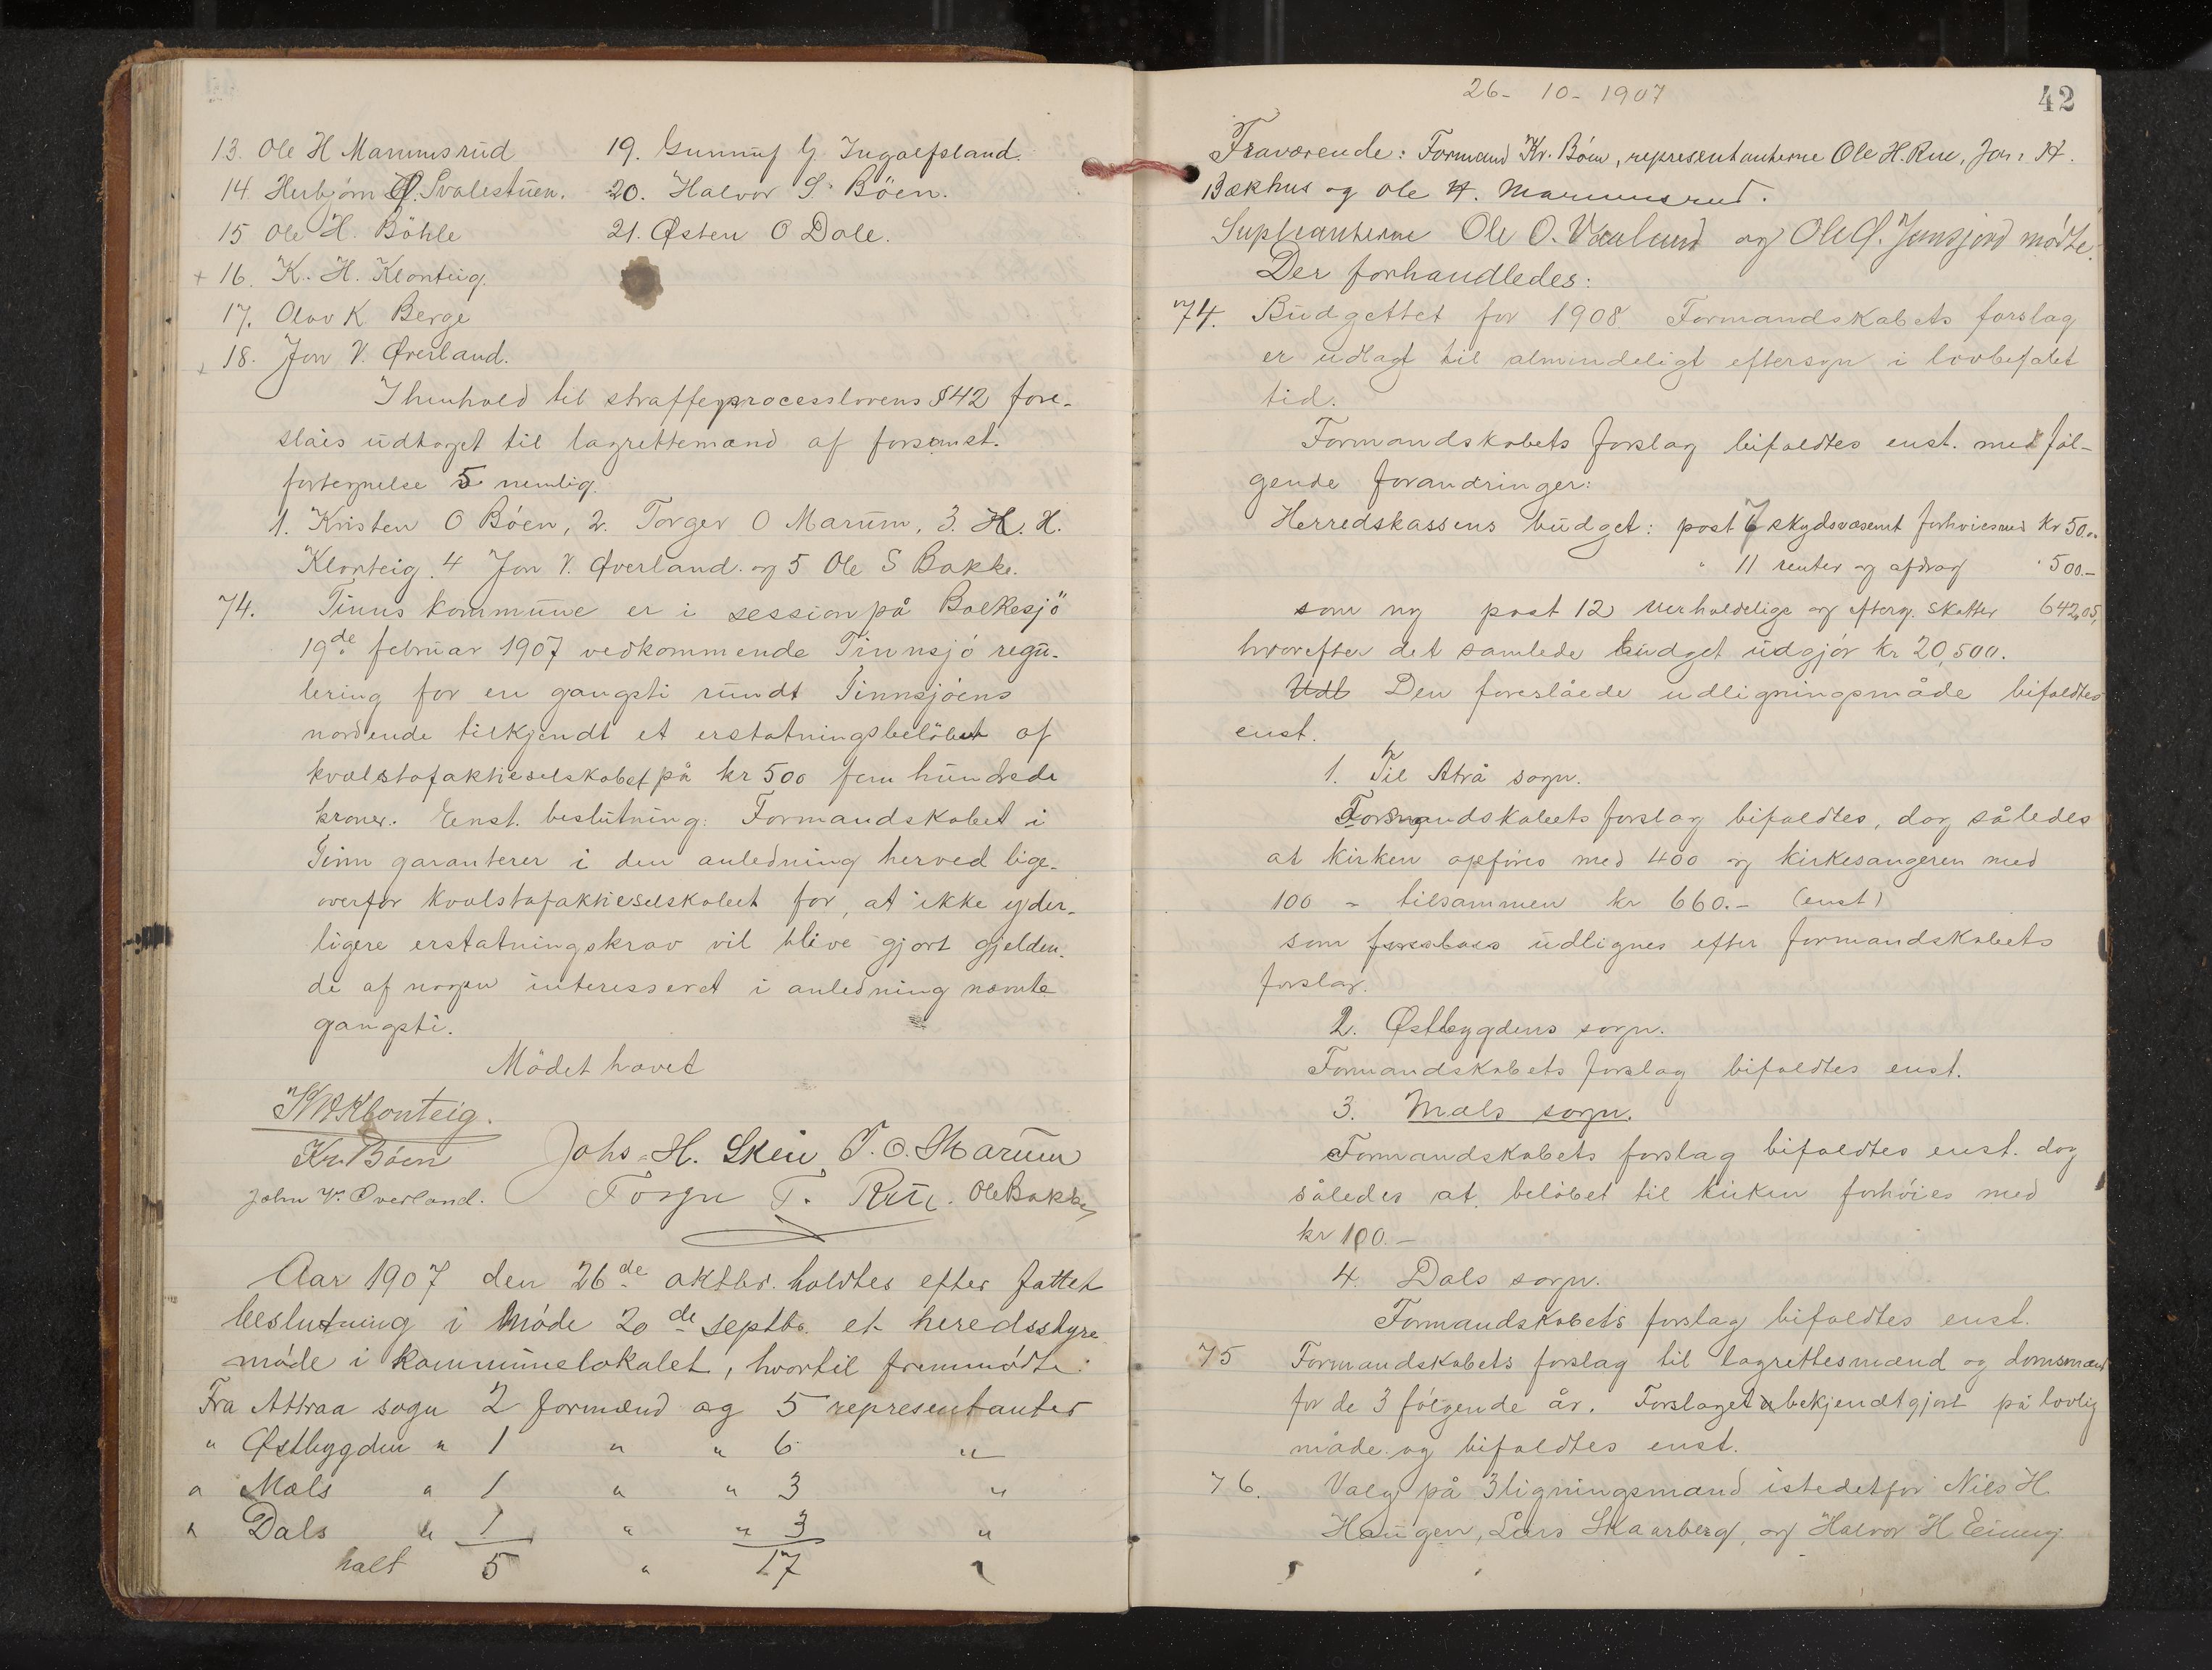 13. Ole H Marumsrud
14. Herbjörn O. Svalestuen.
15 Ole H. Böhle
+ 16. K. H. Klonteig.
17. Olav K. Berge
+ 18. Jon V. Øverland.
19. Gunnuf G Ingolfsland.
20. Halvor S. Böen.
21. Østen O Dale.
I henhold til straffeprocesslovens §42 fore-
slåes udtaget til lagrettemænd af forsømst.
fortegnelse 5 nemlig.
1. Kristen O Böen, 2. Torger O Marum, 3. H. H.
Klonteig. 4 Jon V. Øverland. og 5 Ole S Bakke.
74. Tinns kommune er i session på Bolkesjö
19de februar 1907 vedkommende Tinnsjö regu-
lering for en gangsti rundt Tinnsjöens
nordende tilkjendt et erstatningsbelöbet af
kvalstofaktieselskabet på kr 500 fem hundrede
kroner. Enst. beslutning: Formandskabet i
Tinn garanterer i den anledning herved lige-
overfor kvalstofaktieselskabet for, at ikke yder-
ligere erstatningskrav vil blive gjort gjelden-
de af nogen interesseret i anledning nævnte
gangsti.
Mödet hævet
K H Klonteig.
Kr. Böen Johs. H. Skeie T. O. Marum
John V. Øverland. Torgr T. Rue. Ole Bakke
Aar 1907 den 26de oktbr. holdtes efter fattet
beslutning i Möde 20de septbr. et heredsstyre
möde i kommunelokalet, hvortil fremmödte:
Fra Attraa sogn 2 formænd og 5 representanter
" Østbygden " 1 " " 6 "
" Mæls " 1 " " 3 "
" Dals " 1 " " 3 "
halt 5 " 17 "
26- 10- 1907
42
Fraværende: Formand Kr. Böen, representanterne Ole H. Rue, Jon H.
Bækhus og Ole H. Marumsrud.
Supleanterne Ole O. Vaaland og Ole Ø. mödte.
Der forhandledes:
74. Budgettet for 1908 Formandskabets forslag
er udlagt til almindeligt eftersyn i lovbefalet
tid.
Formandskabets forslag bifaldtes enst. med föl-
gende forandringer:
Herredskassens budget: post 7 skydsvæsenet forhöies med kr 50.00
" 11 renter og afdrag " 500.-
som ny post 12 uerholdelige og efterg. skatter 642,05,
hvorefter det samlede budget udgjör kr 20,500.
Udl Den foreslåede udligningsmåde bifaldtes
enst.
1. Til Atrå sogn.
Formandskabets forslag bifaldtes, dog således
at kirken opföres med 400 og kirkesangeren med
100 - tilsammen kr 660.- (enst)
som udlignes efter formandskabets
forslag.
2. Østbygdens sogn.
Formandskabets forslag bifaldtes enst.
3. Mæls sogn.
Formandskabets forslag bifaldtes enst. dog
således at belöbet til kirken forhöies med
kr 100.-
4. Dals sogn.
Formandskabets forslag bifaldtes enst.
75 Formandskabets forslag til lagrettesmænd og domsmænd
for de 3 fölgende år. Forslaget bekjendtgjort på lovlig
måde og bifaldtes enst.
76. Valg på 3 ligningsmænd istedetfor Nils H.
Haugen, Lars Skaarberg, og Halvor H Einung